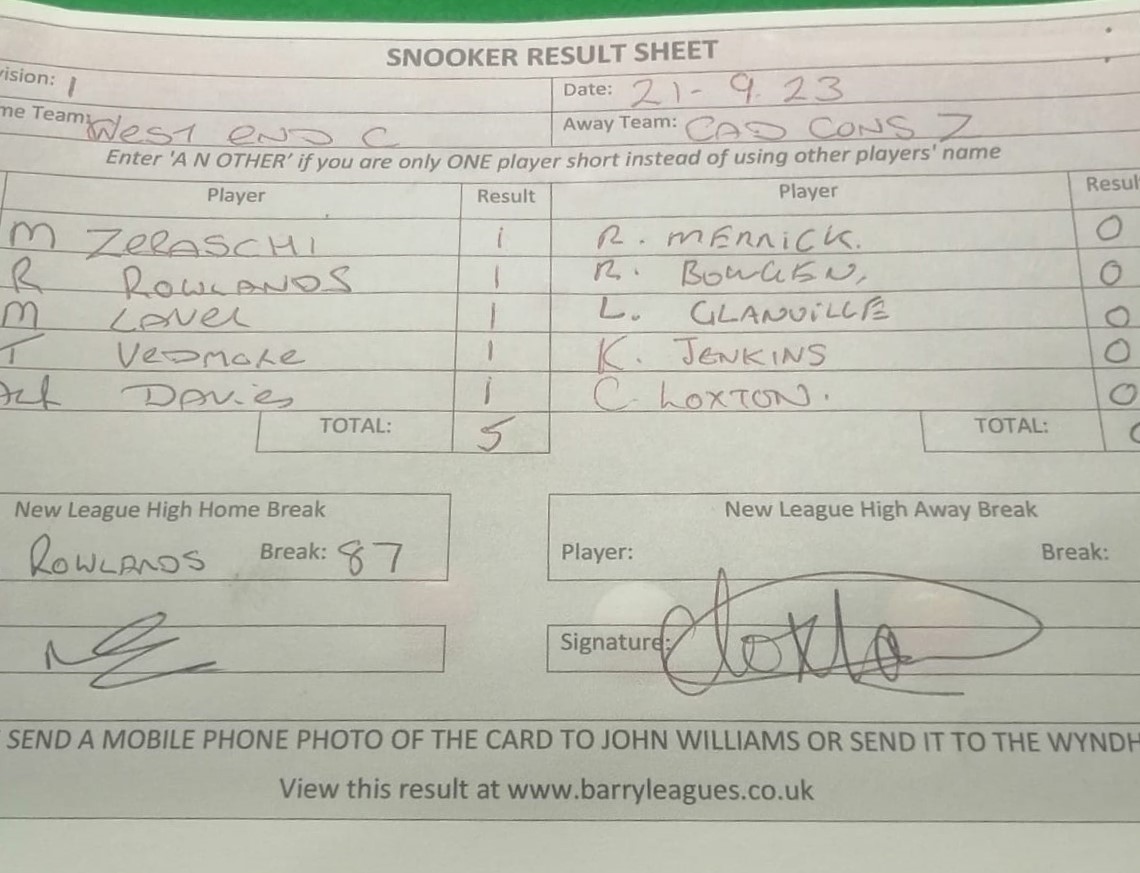 SNOOKER RESULT SHEET
vision: 1 Date: 21-9.23
me Team: West end C Away Team: CAD CONS Z
Enter 'A N OTHER' if you are only ONE player short instead of using other players' name
Player Result Player Resul
M ZERASCHI 1 R. MERRICK. 0
R ROWLANDS 1 R. BOWGEN, 0
M LAVER 1 L. GLANVILLE 0
T VEDMORE 1 K. JENKINS 0
Davies 1 C LOXTON. 0
TOTAL: 5 TOTAL: 0
New League High Home Break New League High Away Break
ROWLANDS Break: 87 Player: Break:
Signature:
SEND A MOBILE PHONE PHOTO OF THE CARD TO JOHN WILLIAMS OR SEND IT TO THE WYNDH
View this result at www.barryleagues.co.uk